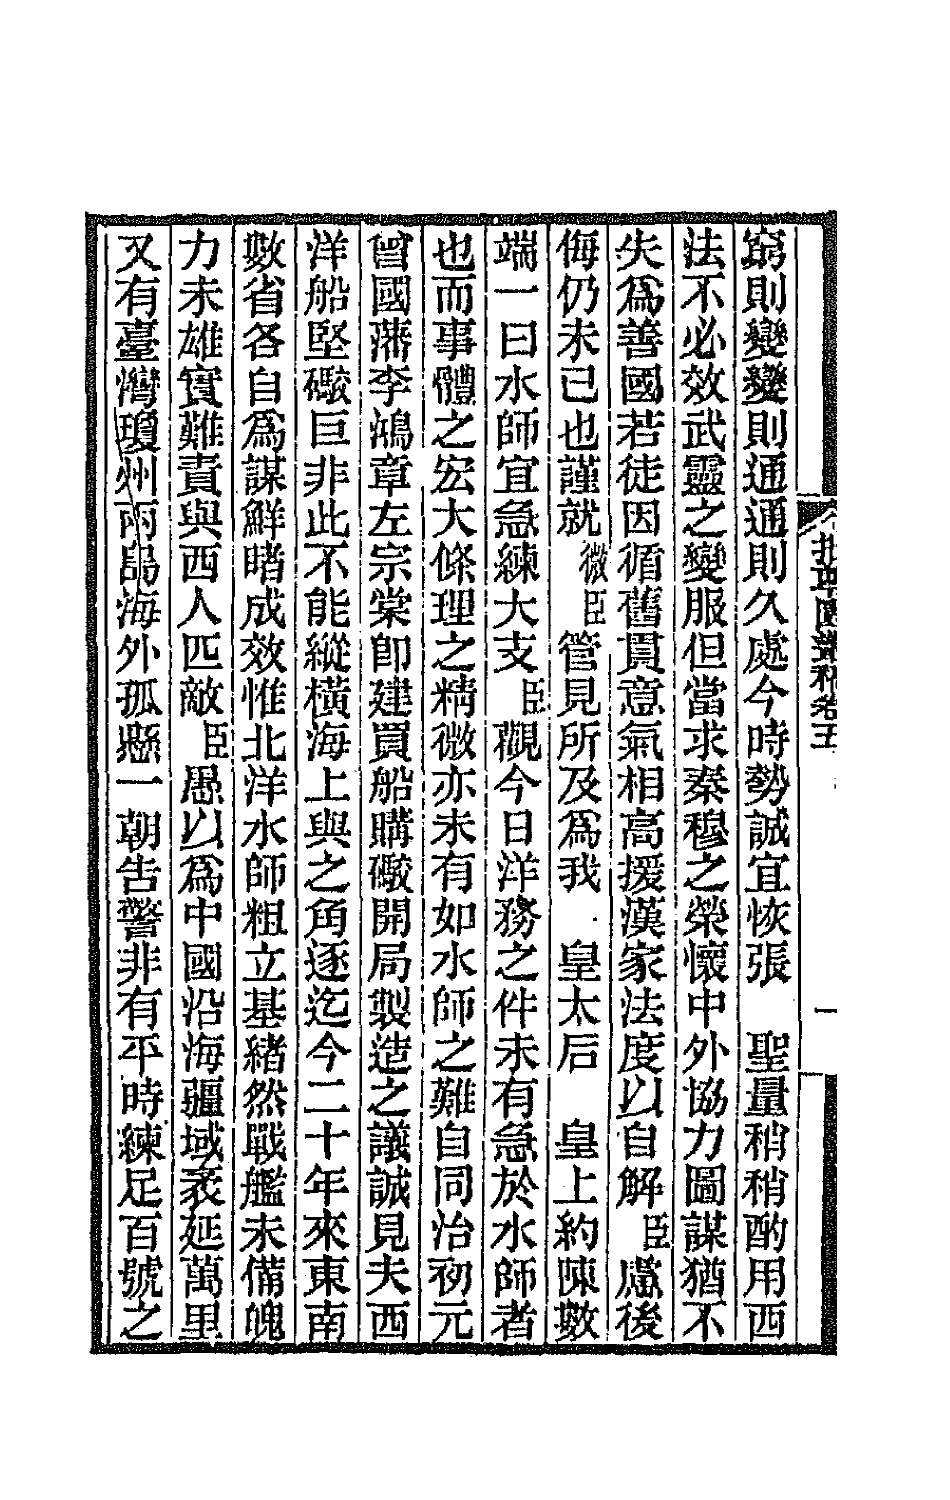 窮則變變則通通則久處今時勢誠宜恢張　聖量稍稍酌用西
法不必效武靈之變服但當求秦穆之榮懷中外協力圖謀猶不
失爲善國若徒因循舊貫意氣相高援漢家法度以自解臣慮後
侮仍未已也謹就微臣管見所及爲我　皇太后　皇上約陳數
端一曰水師宜急練大支臣觀今日洋務之件未有急於水師者
也而事體之宏大條理之精微亦未有如水師之難自同治初元
曾國藩李鴻章左宗棠卽建買船購礮開局製造之議誠見夫西
洋船堅礮巨非此不能縱橫海上與之角逐迄今二十年來東南
數省各自爲謀鮮睹成效惟北洋水師粗立基緒然戰艦未備魄
力未雄實難責與西人匹敵臣愚以爲中國沿海疆域袤延萬里
又有臺灣瓊州兩島海外孤懸一朝告警非有平時練足百號之
卷五
一